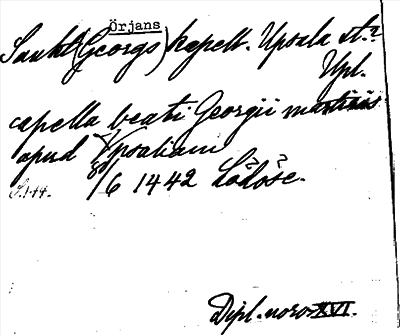 Örjans
Sankt (Georgs) kapell. Upsala st.?
Upl.
capella beati Georgii martiriis
apud Vpsaliam
S. 144. 8/6 1442 Lödöse.
Dipl. noro. XVI.